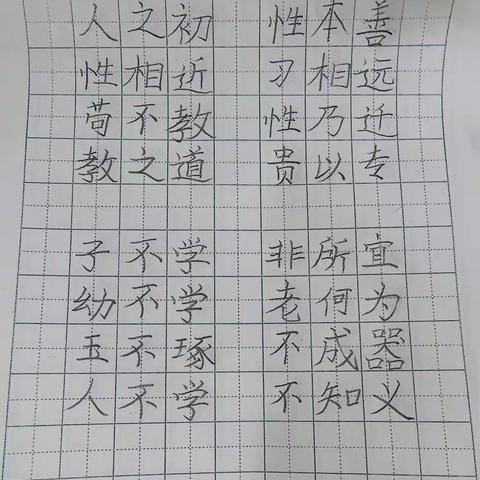 人之初 性本善
性相近 习相远
苟不教 性乃迁
教之道 贵以专
子不学 非所宜
幼不学 老何为
玉不琢 不成器
人不学 不知义